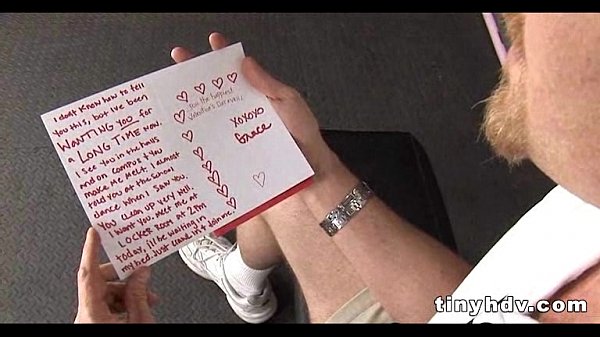 I dont know how to tell
you this, but I've been
WANTING YOU for
a LONG TIME now.
I see you in the halls
and on campus & you
make me melt. I almost
told you at the
dance when I saw you.
You clean up very well.
I want you. Meet me at
LOCKER AT 2PM
today, I'll be waiting in
my just & join me.
For the happiest
Valentine's
XOXOXO
Grace
tinyhdv.com